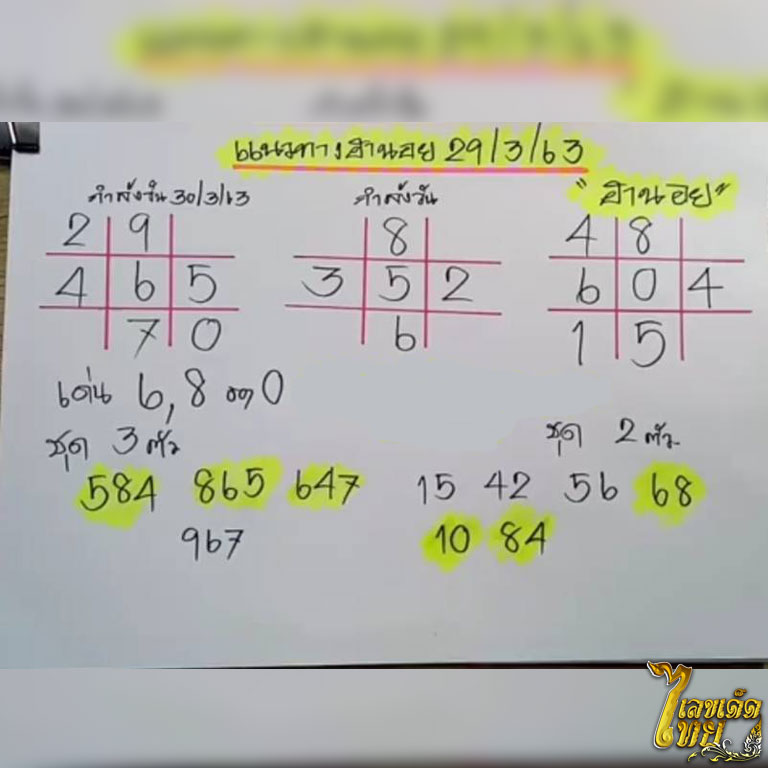 แนวทางฮานอย 29/3/63
คำสั่งวัน 30/3/63 คำสั่งวัน "ฮานอย"
2 9 8 4 8
4 6 5 3 5 2 6 0 4
7 0 6 1 5
เด่น 6,8 0
ชุด 3 ตัว ชุด 2 ตัว
584 865 647 15 42 56 68
967 10 84
เลขเด็ด
ไทย